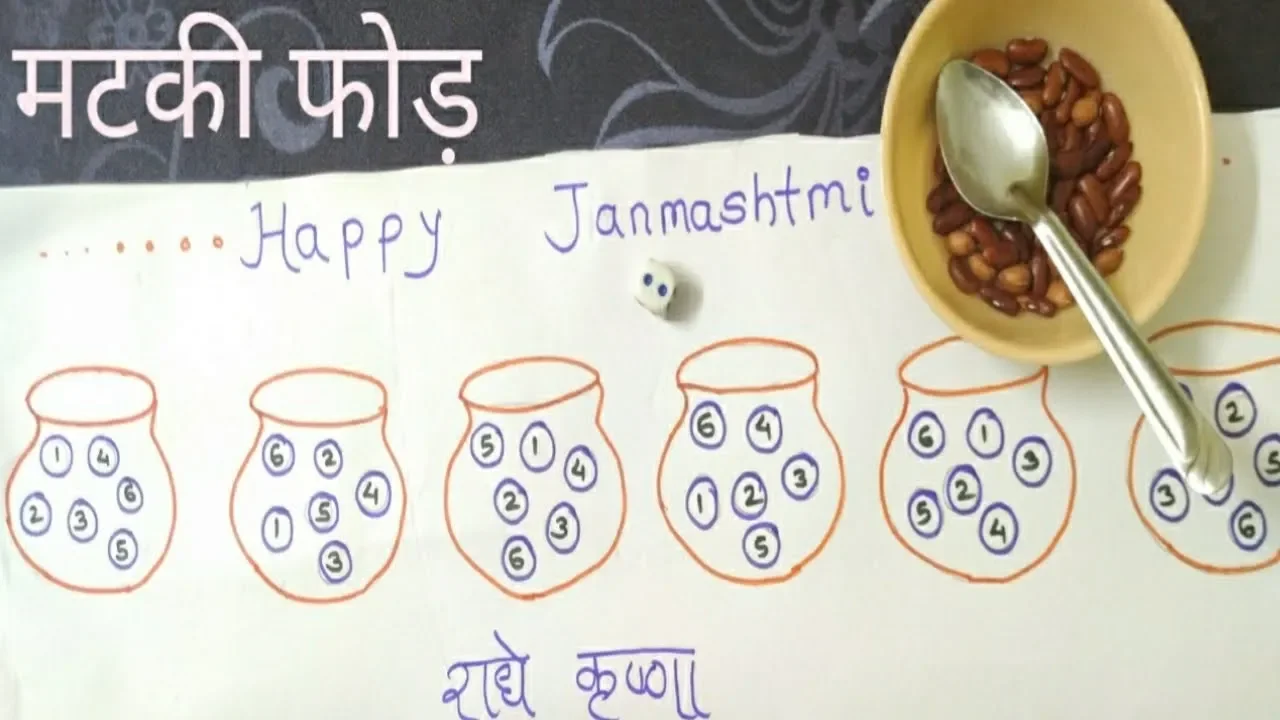 मटकी फोड़
Happy Janmashtmi
1 4 6 2 3 5
6 2 4 1 5 3
5 1 4 2 3 6
6 4 3 1 2 5
6 1 3 2 5 4
2 5 3 6
राधे कृष्णा